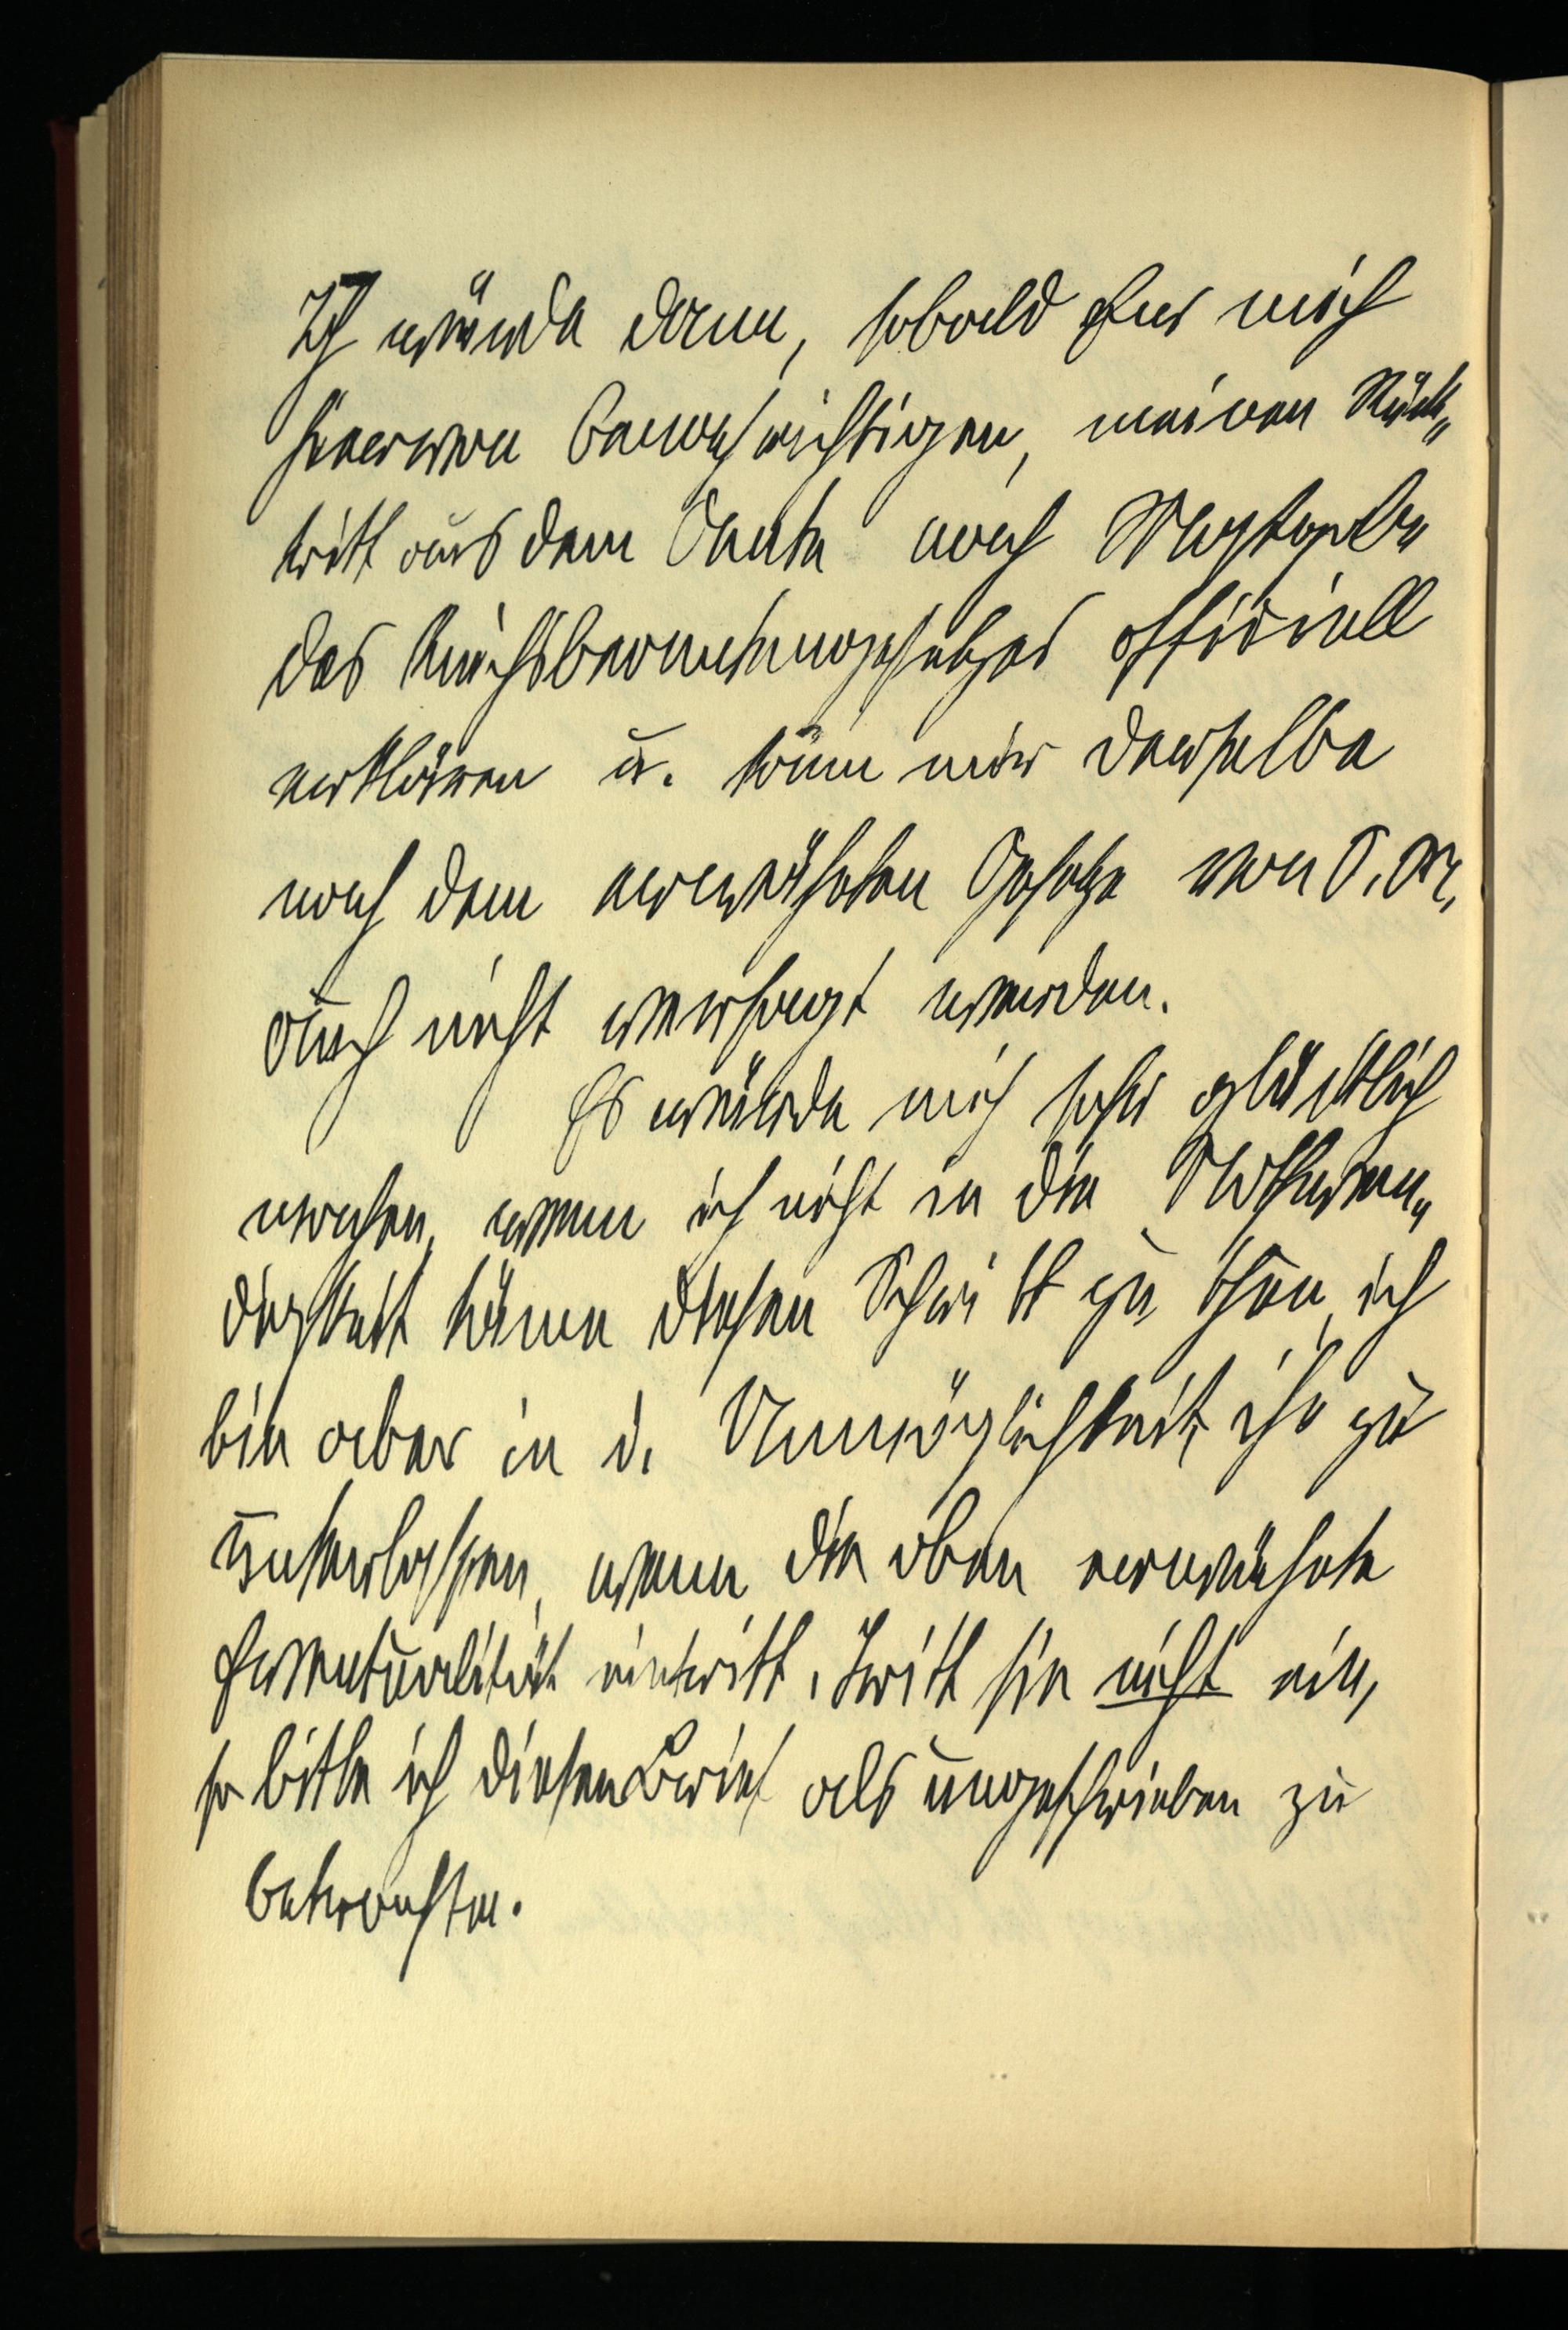 Ich würde dann, sobald Eur mich
hiervon benachrichtigen, meinen Rück„
tritt aus dem Amte nach Maßgabe
des Reichsbeamtengesetzes officiell
erklären u. kann mir derselbe
nach dem erwähnten Gesetze von S. M.
auch nicht versagt werden.
Es würde mich sehr glücklich
machen, wenn ich nicht in die Nothwen„
digkeit käme diesen Schritt zu thun, ich
bin aber in d. Unmöglichkeit, ihn zu
unterlassen, wenn die oben erwähnte
Eventualität eintritt. Tritt sie nicht ein,
so bitte ich diesen Brief als ungeschrieben zu
betrachten.